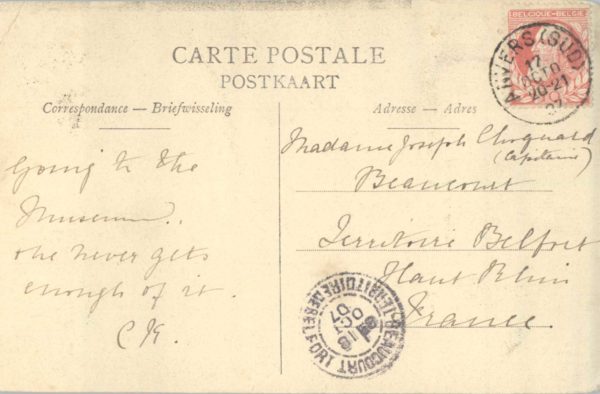 CARTE POSTALE
POSTKAART
Correspondance — Briefwisseling
Adresse — Adres
BELGIQUE-BELGIË
ANVERS (SUD)
17
OCTO
20-21
07
Going to the
Museum.
one never gets
enough of it.
Madame Joseph
(Capitaine)
Beaucourt
Territoire Belfort
Haut Rhin
France.
BEAUCOURT
TERRITOIRE DE BELFORT
18
OCT
07